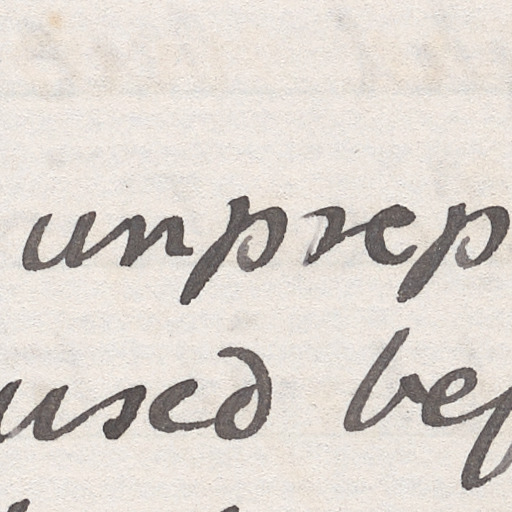 unprep
used bef